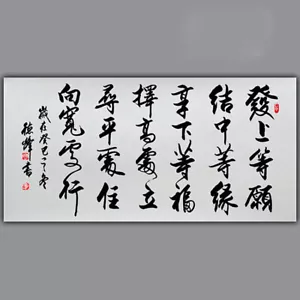 發上等願
結中等緣
享下等福
擇高處立
尋平處住
向寬處行
歲在癸巳之冬